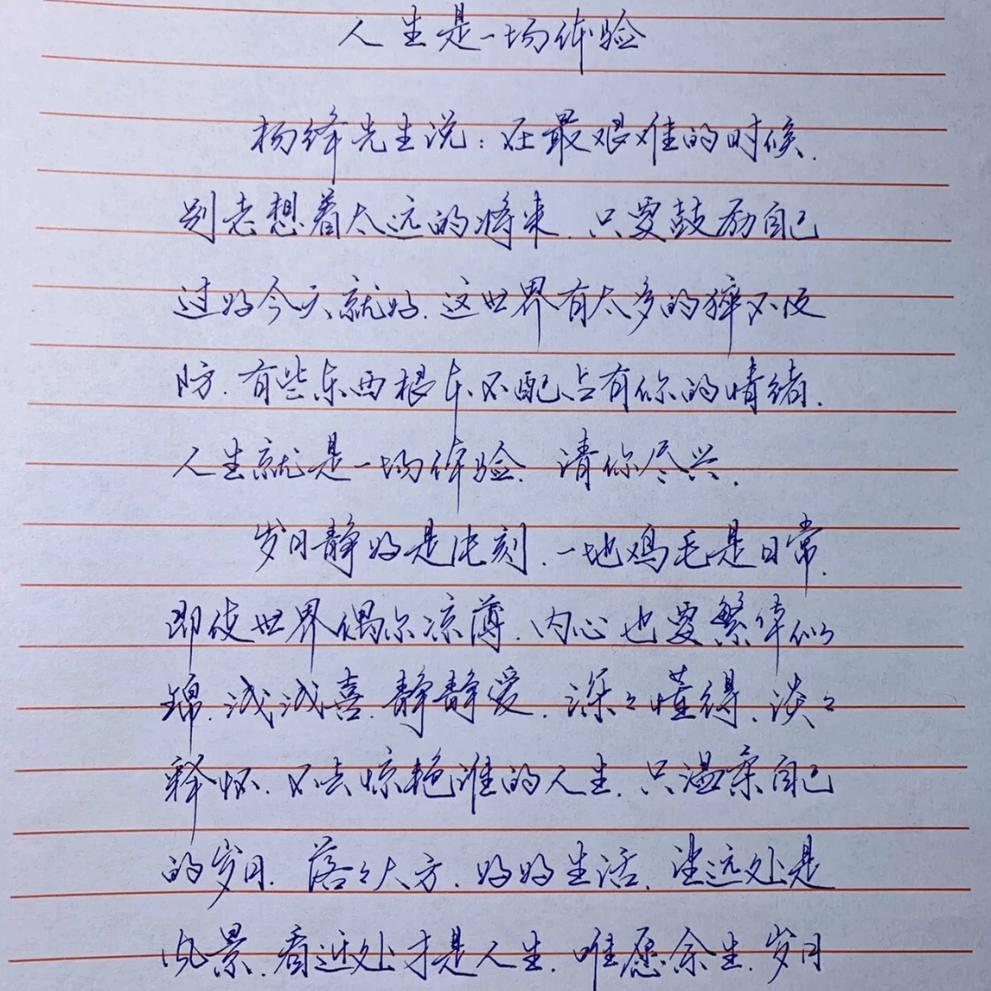 人生是一场体验
杨绛先生说:在最艰难的时候.
别老想着太远的将来.只要鼓励自己
过好今天就好.这世界有太多的猝不及
防.有些东西根本不配占有你的情绪.
人生就是一场体验.请你尽兴.
岁月静好是片刻.一地鸡毛是日常.
即使世界偶尔凉薄.内心也要繁华似
锦.浅浅喜.静静爱.深々懂得.淡々
释怀.不去惊艳谁的人生.只温柔自己
的岁月.落々大方.好好生活.望远处是
风景.看近处才是人生.唯愿余生.岁月